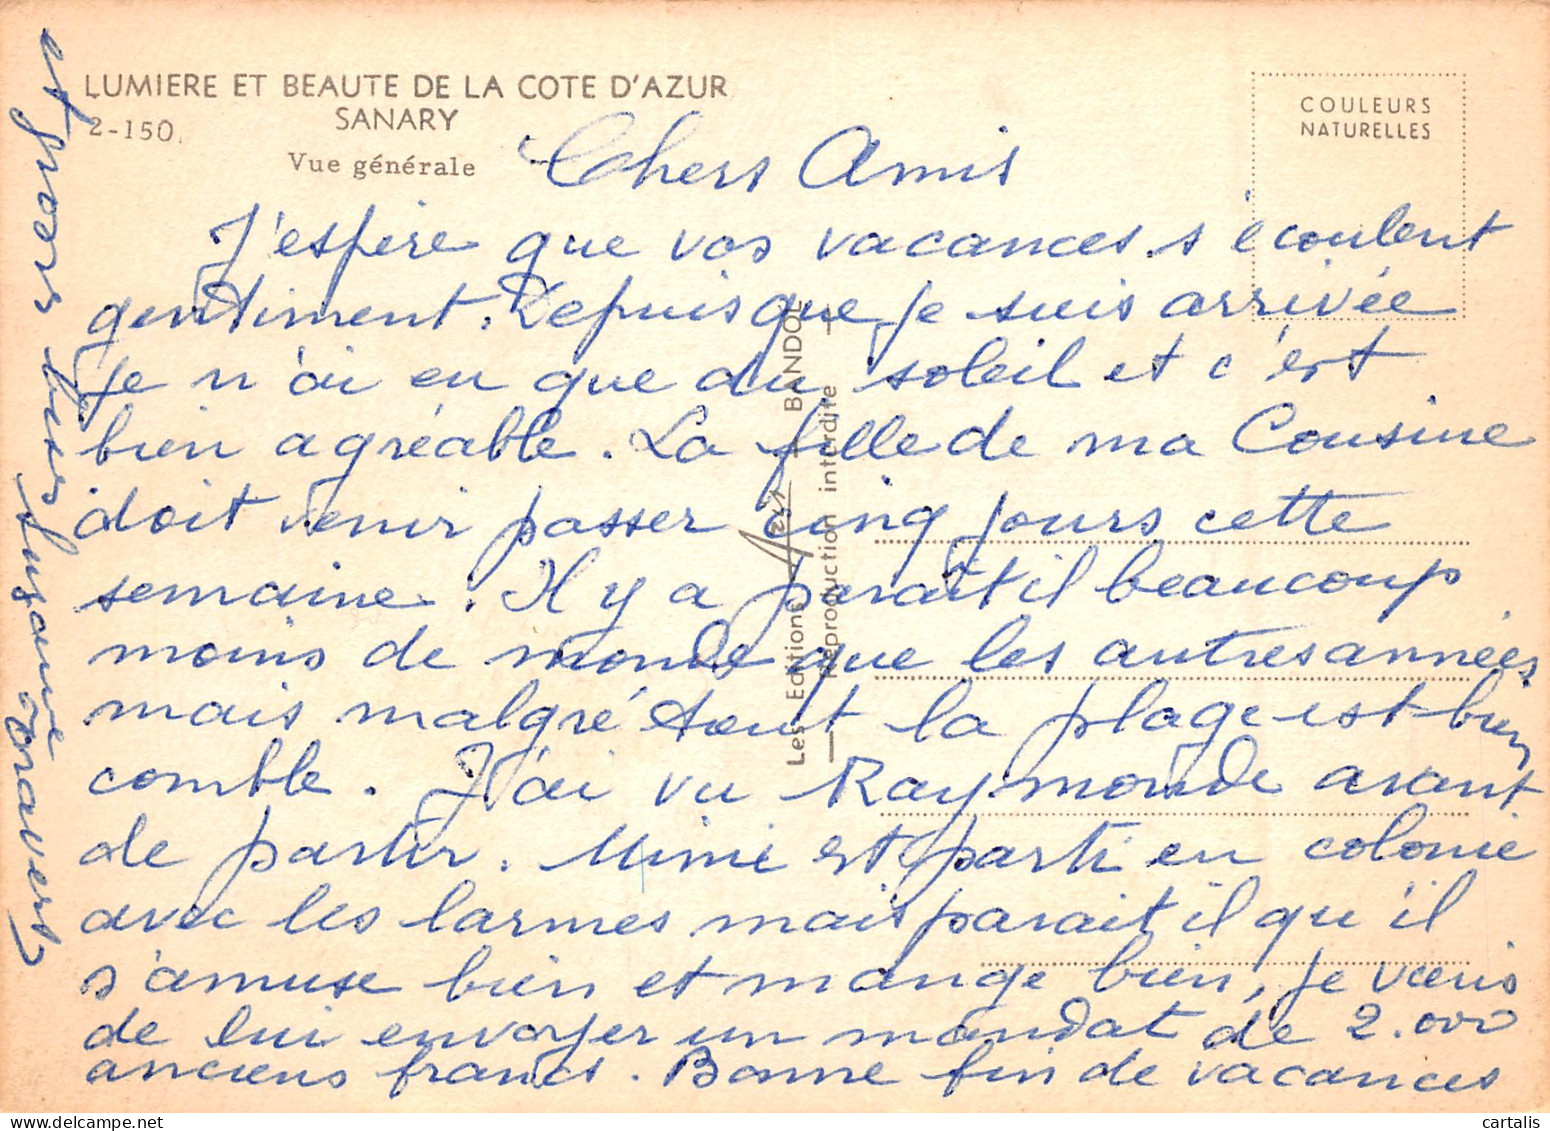 LUMIERE ET BEAUTE DE LA COTE D'AZUR
2-150.
SANARY
Vue générale
COULEURS
NATURELLES
Chers Amis
J'espère que vos vacances s'écoulent
gentiment. Depuis que je suis arrivée
je n'ai eu que du soleil et c'est
bien agréable. La fille de ma Cousine
doit venir passer cinq jours cette
semaine. Il y a paraît il beaucoup
moins de monde que les autres années
mais malgré tout la plage est bien
comble. J'ai vu Raymonde avant
de partir. Mimi est parti en colonie
avec les larmes mais parait il qu'il
s'amuse bien et mange bien, je viens
de lui envoyer un mandat de 2.000
anciens francs. Bonne fin de vacances
et gros bises Susanne
Les Editions BANDOL
— Reproduction interdite —
cartalis